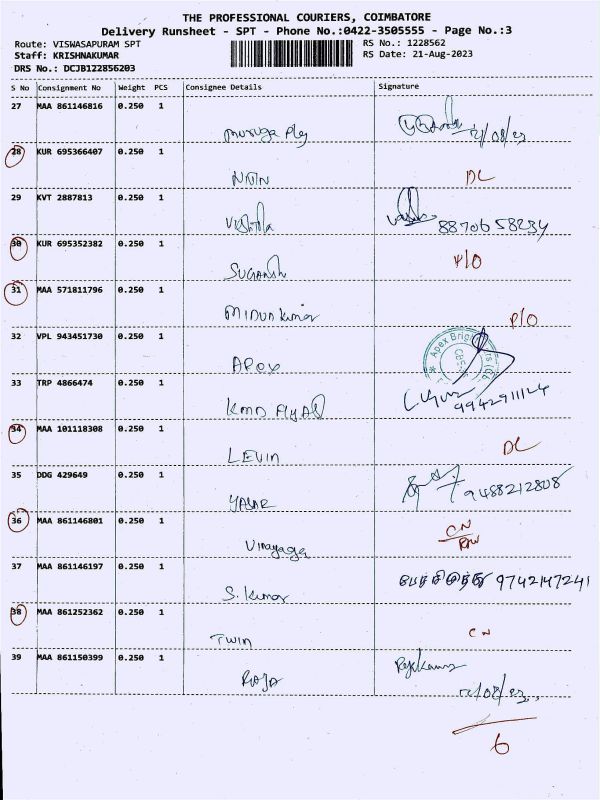 THE PROFESSIONAL COURIERS, COIMBATORE
Delivery Runsheet - SPT - Phone No.:0422-3505555 - Page No.:3
Route: VISWASAPURAM SPT
RS No.: 1228562
Staff: KRISHNAKUMAR
RS Date: 21-Aug-2023
DRS No.: DCJB122856203
S No Consignment No Weight PCS Consignee Details Signature
27 MAA 861146816 0.250 1
Muruga Ply
28 KUR 695366407 0.250 1
DL
29 KVT 2887813 0.250 1
8870658234
30 KUR 695352382 0.250 1
SUGANSH
31 MAA 571811796 0.250 1
MIDUN Kumar
P/O
32 VPL 943451730 0.250 1
APEX
33 TRP 4866474 0.250 1
9942911124
34 MAA 101118308 0.250 1
LEVIN DL
35 DDG 429649 0.250 1
YASAR 9488212808
36 MAA 861146801 0.250 1
Vinayaga CN
37 MAA 861146197 0.250 1
S. Kumar 9742147241
38 MAA 861252362 0.250 1
TWIN CN
39 MAA 861150399 0.250 1
RAJA Rajkumar
6